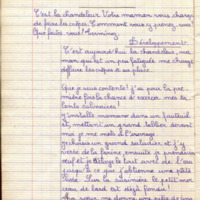 C'est la chandeleur. Votre maman vous charge
de faire les crêpes. Comment vous y prenez-vous
Que faites-vous? Terminez.
Développement.
C'est aujourd'hui la chandeleur, ma-
man qui est un peu fatiguée me charge
de faire les crêpes à sa place.
Que je suis contente! j'ai pour la pre-
mière fois la chance d'exercer mes ta-
lents culinaires!
J'installe maman dans un fauteuil
et, mettant un grand tablier devant
moi je me mets à l'ouvrage
un grand saladier, et j'y
verse de la farine, ensuite je
œuf et je le tout avec de l'eau
jusqu'à ce que j'obtienne une pâte
Sur la cuisinière le petit mor-
ceau de lard est déjà fondu!